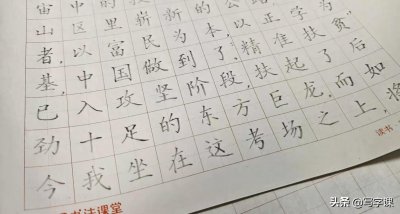 宙
山区里崭新的公
者,以富民为本,以
基,中国做到了,"精准扶贫"
已入攻坚阶段,扶起了后
劲十足的东方巨龙,而如
今我坐在这考场之上,将
书法课堂
读书
头条 @写字课